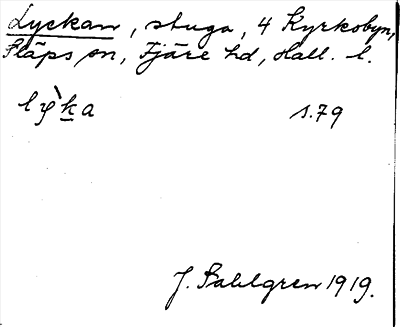 Lyckan, stuga, 4 Kyrkobyn,
Släps sn, Fjäre hd, Hall. l.
s. 79
J. Sahlgren 1919.